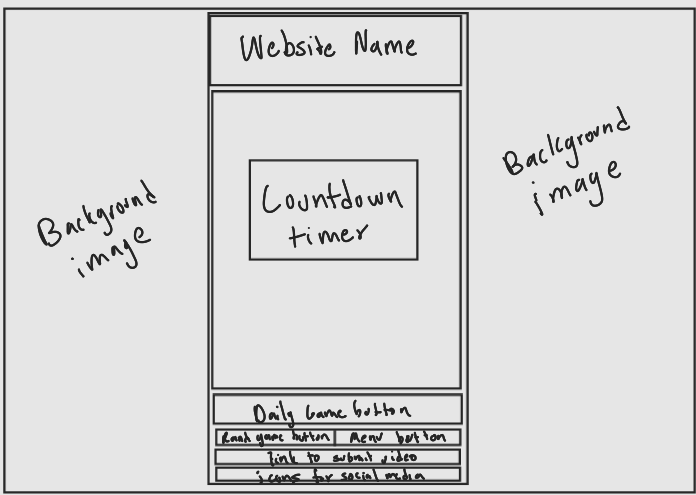 Website Name
Background
image
Background
image
Countdown
timer
Daily Game button
Rand game button
Menu button
link to submit video
icons for social media